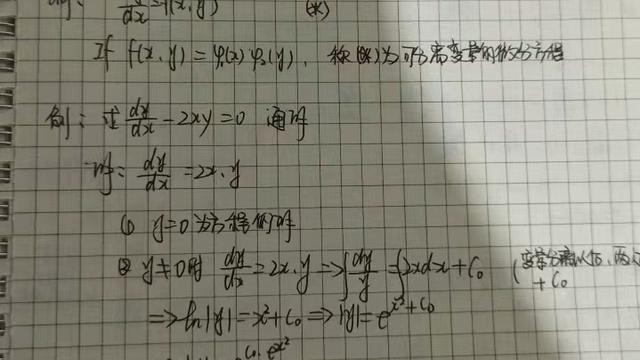 dy/dx = f(x,y) (*)
If f(x,y) = φ₁(x) φ₂(y), 称(*)为可分离变量的微分方程
例: 求 dy/dx - 2xy = 0 通解
解: dy/dx = 2x·y
① y=0 为方程的解
② y≠0时 dy/dx = 2x·y ⇒ ∫dy/y = ∫2xdx + C₀ (变量分离以后,两边
+ C₀
⇒ ln|y| = x² + C₀ ⇒ |y| = e^{x²+C₀}